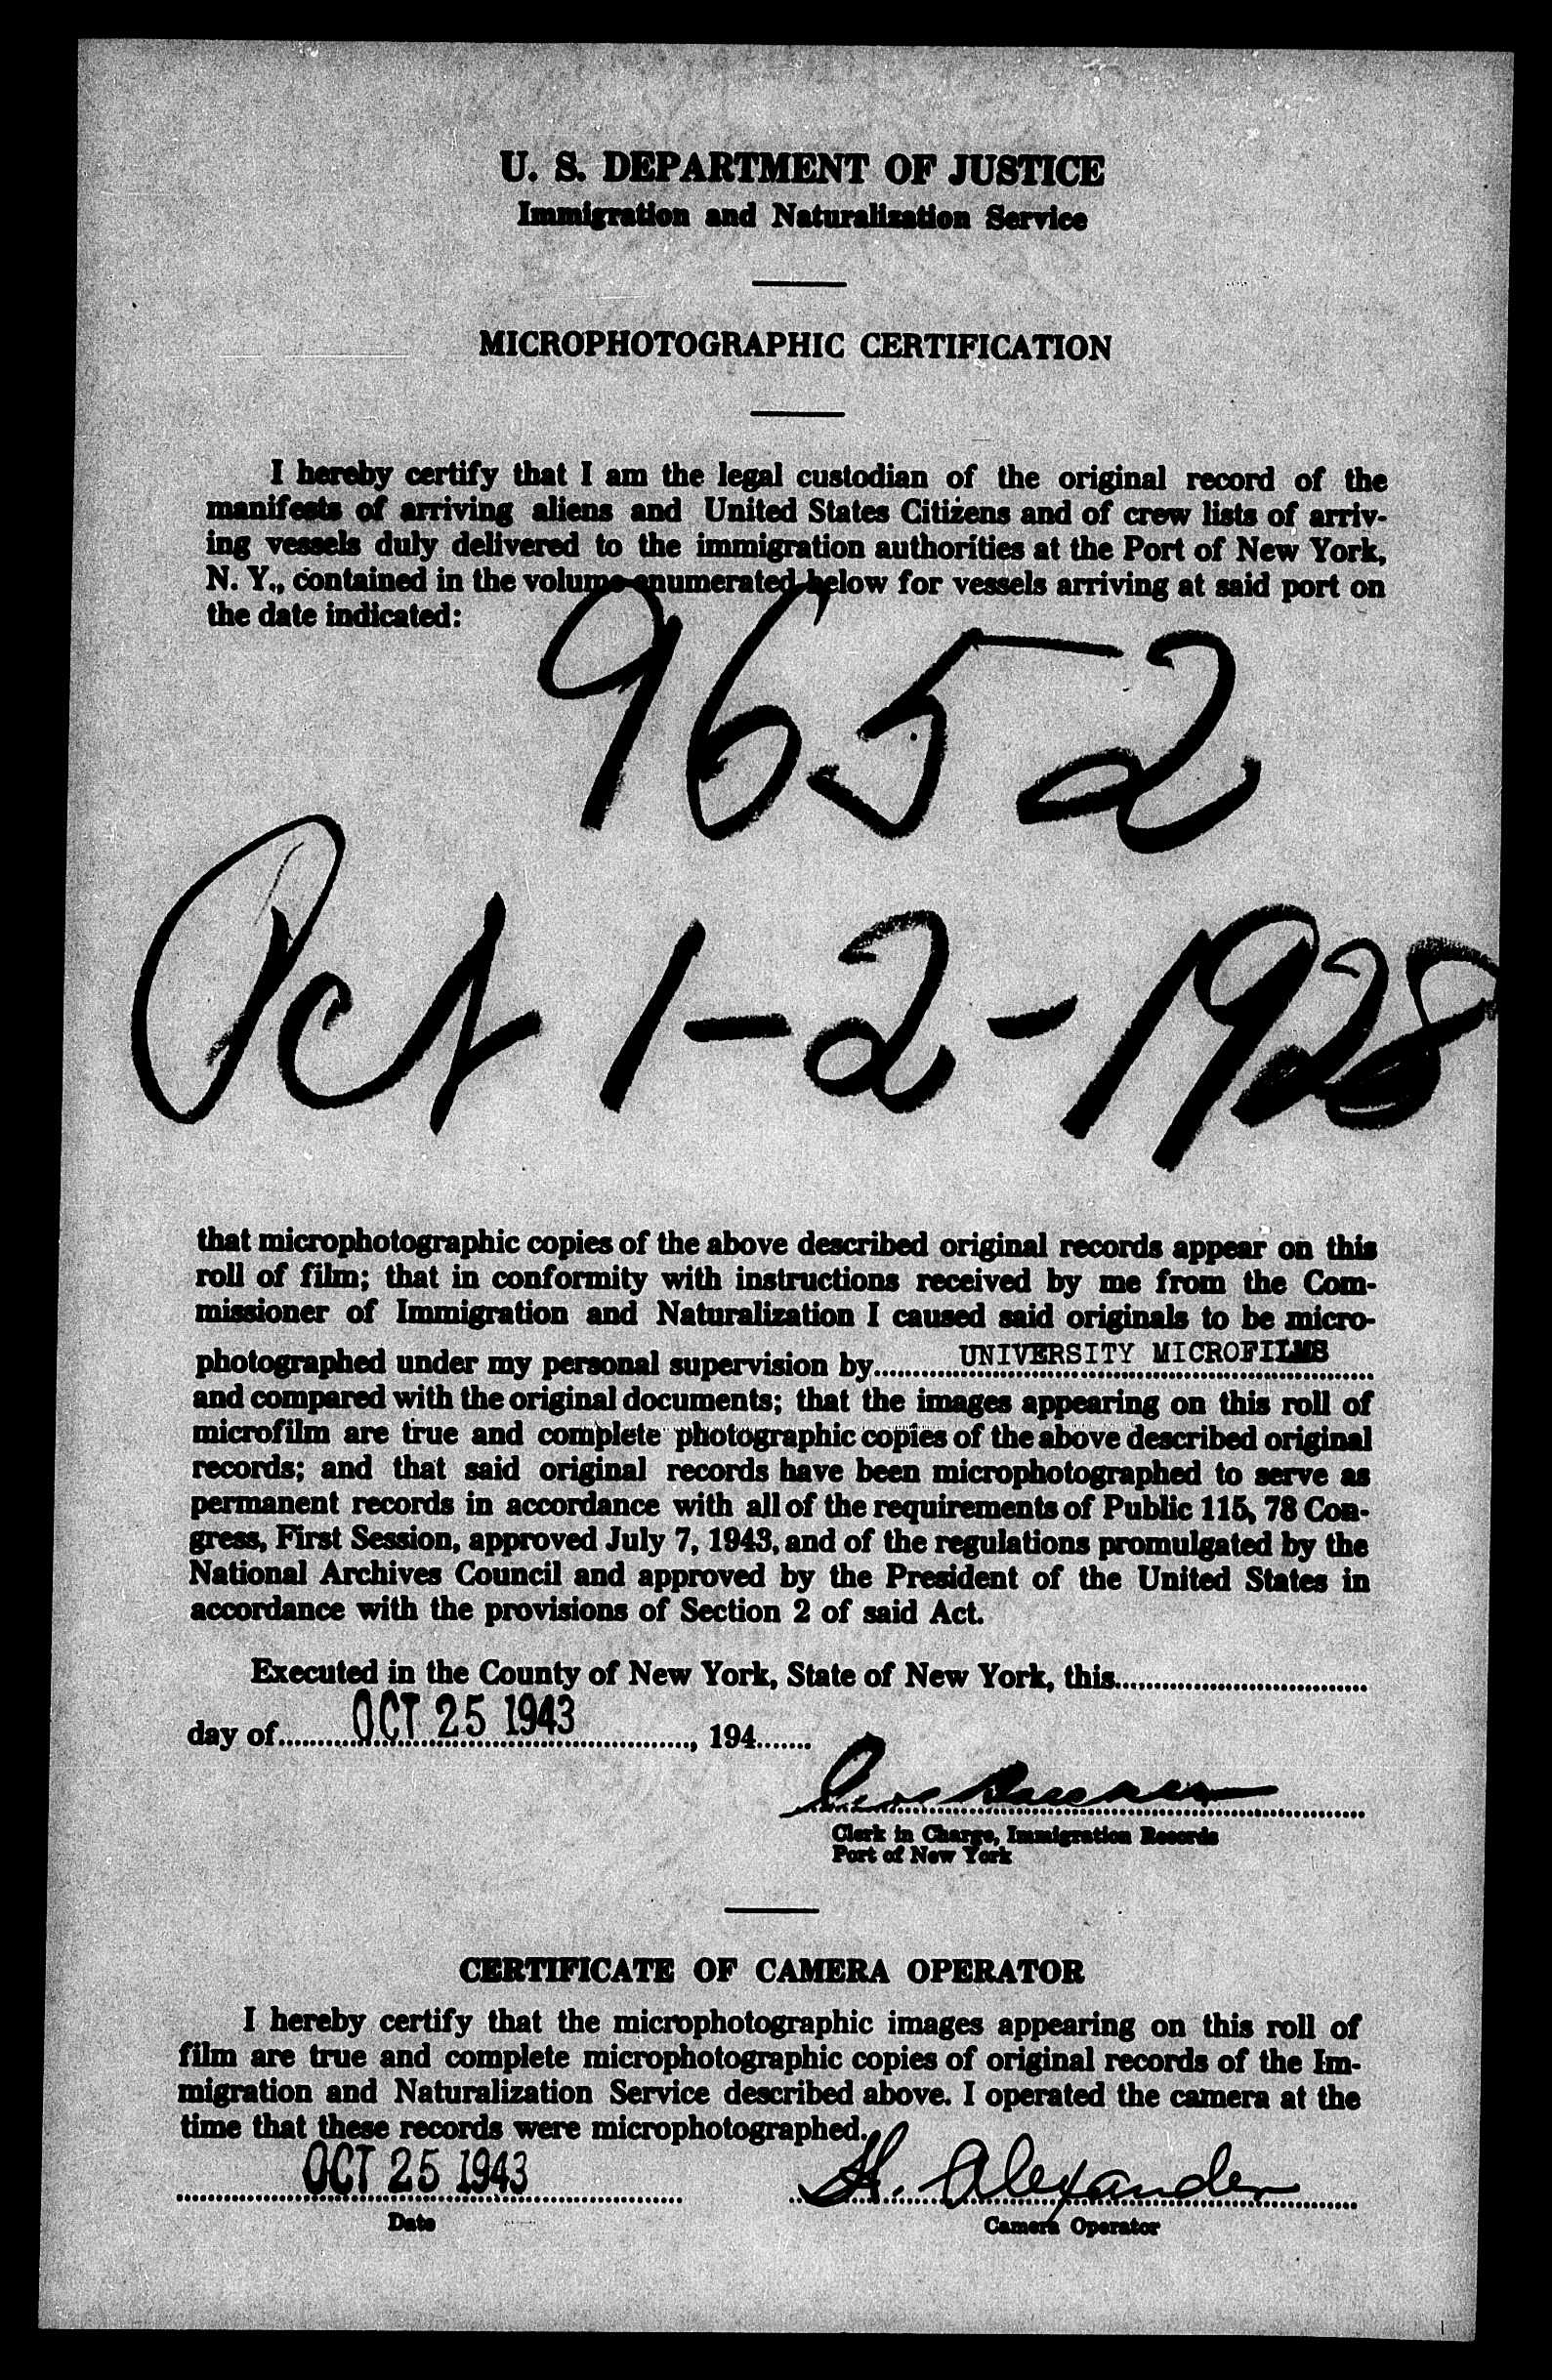 U. S. DEPARTMENT OF JUSTICE
Immigration and Naturalization Service
MICROPHOTOGRAPHIC CERTIFICATION
I hereby certify that I am the legal custodian of the original record of the
manifests of arriving aliens and United States Citizens and of crew lists of arriv-
ing vessels duly delivered to the immigration authorities at the Port of New York,
N. Y., contained in the volume enumerated below for vessels arriving at said port on
the date indicated:
9652
Oct 1-2-1928
that microphotographic copies of the above described original records appear on this
roll of film; that in conformity with instructions received by me from the Com-
missioner of Immigration and Naturalization I caused said originals to be micro-
photographed under my personal supervision by UNIVERSITY MICROFILMS
and compared with the original documents; that the images appearing on this roll of
microfilm are true and complete photographic copies of the above described original
records; and that said original records have been microphotographed to serve as
permanent records in accordance with all of the requirements of Public 115, 78 Con-
gress, First Session, approved July 7, 1943, and of the regulations promulgated by the
National Archives Council and approved by the President of the United States in
accordance with the provisions of Section 2 of said Act.
Executed in the County of New York, State of New York, this
day of OCT 25 1943, 194
Clerk in Charge, Immigration Records
Port of New York
CERTIFICATE OF CAMERA OPERATOR
I hereby certify that the microphotographic images appearing on this roll of
film are true and complete microphotographic copies of original records of the Im-
migration and Naturalization Service described above. I operated the camera at the
time that these records were microphotographed.
OCT 25 1943 H. Alexander
Date Camera Operator